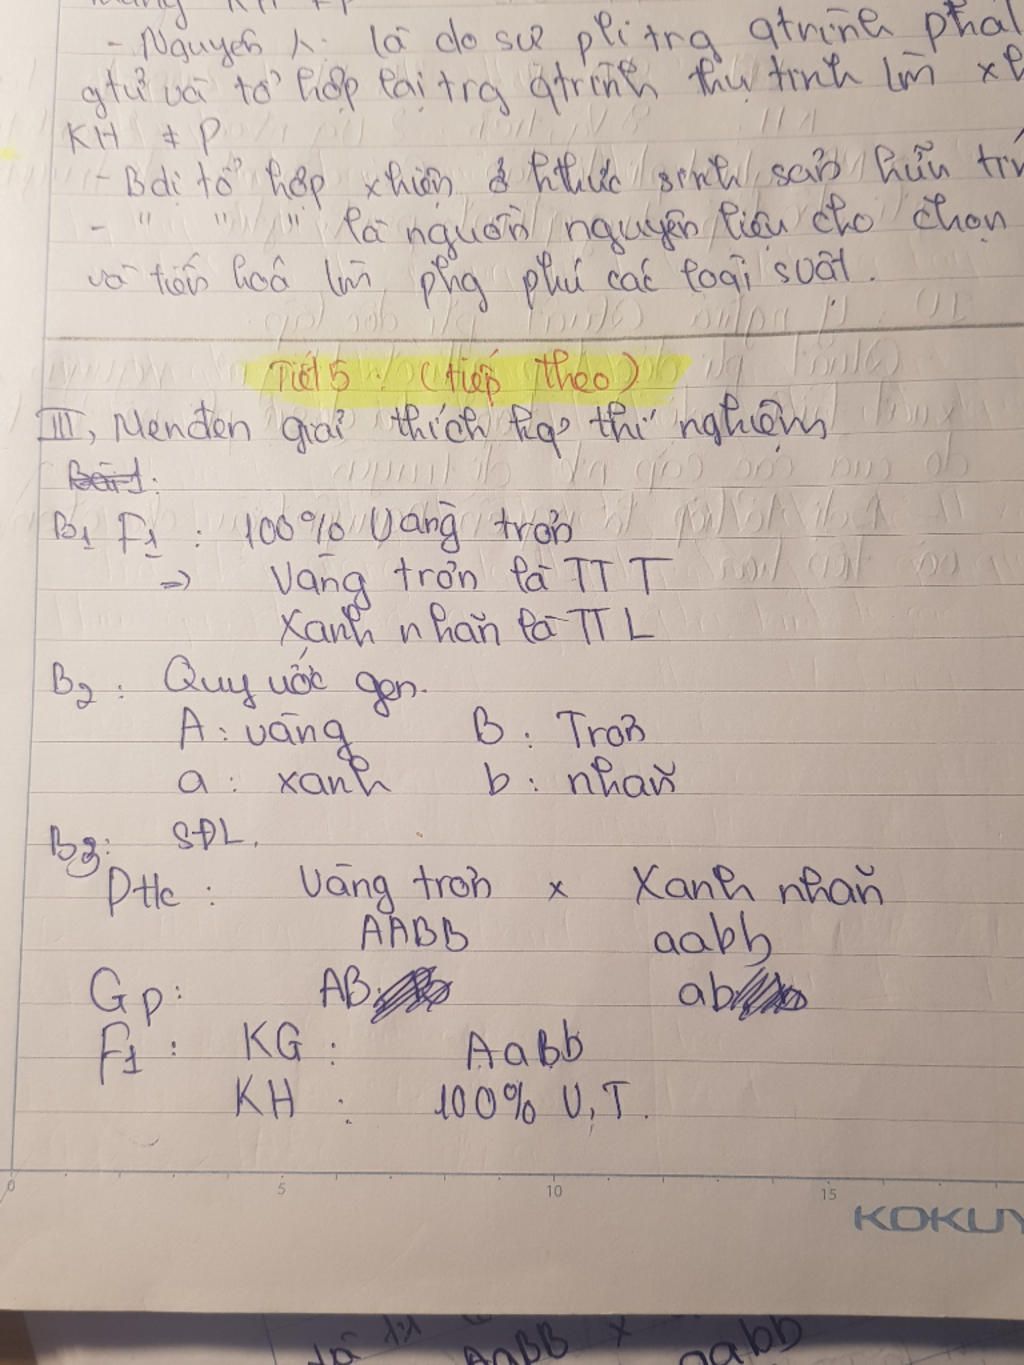 - Nguyên n. là do sự pli trg qtrình phát
gtử và tổ hợp lại trg qtrình thụ tinh lm xh
KH ≠ P
- Bdị tổ hợp xhiện ở hthức sinh sản hữu
- " " " là nguồn nguyên liệu cho chọn
và tiến hoá lm phg phú các loài suất.
Tiết 5 : (tiếp theo)
III, Menđen giải thích kq thí nghiệm
Bài 1:
B1 F1 : 100% Vàng trơn
=> Vàng trơn là TT T
Xanh nhăn là TT L
B2 : Quy ước gen.
A : vàng B : Trơn
a : xanh b : nhăn
B3 : SĐL.
Pt/c : Vàng trơn x Xanh nhăn
AABB aabb
Gp : AB ab
F1 : KG : AaBb
KH : 100% V, T.
0 5 10 15
KOKUY
AaBB x aabb